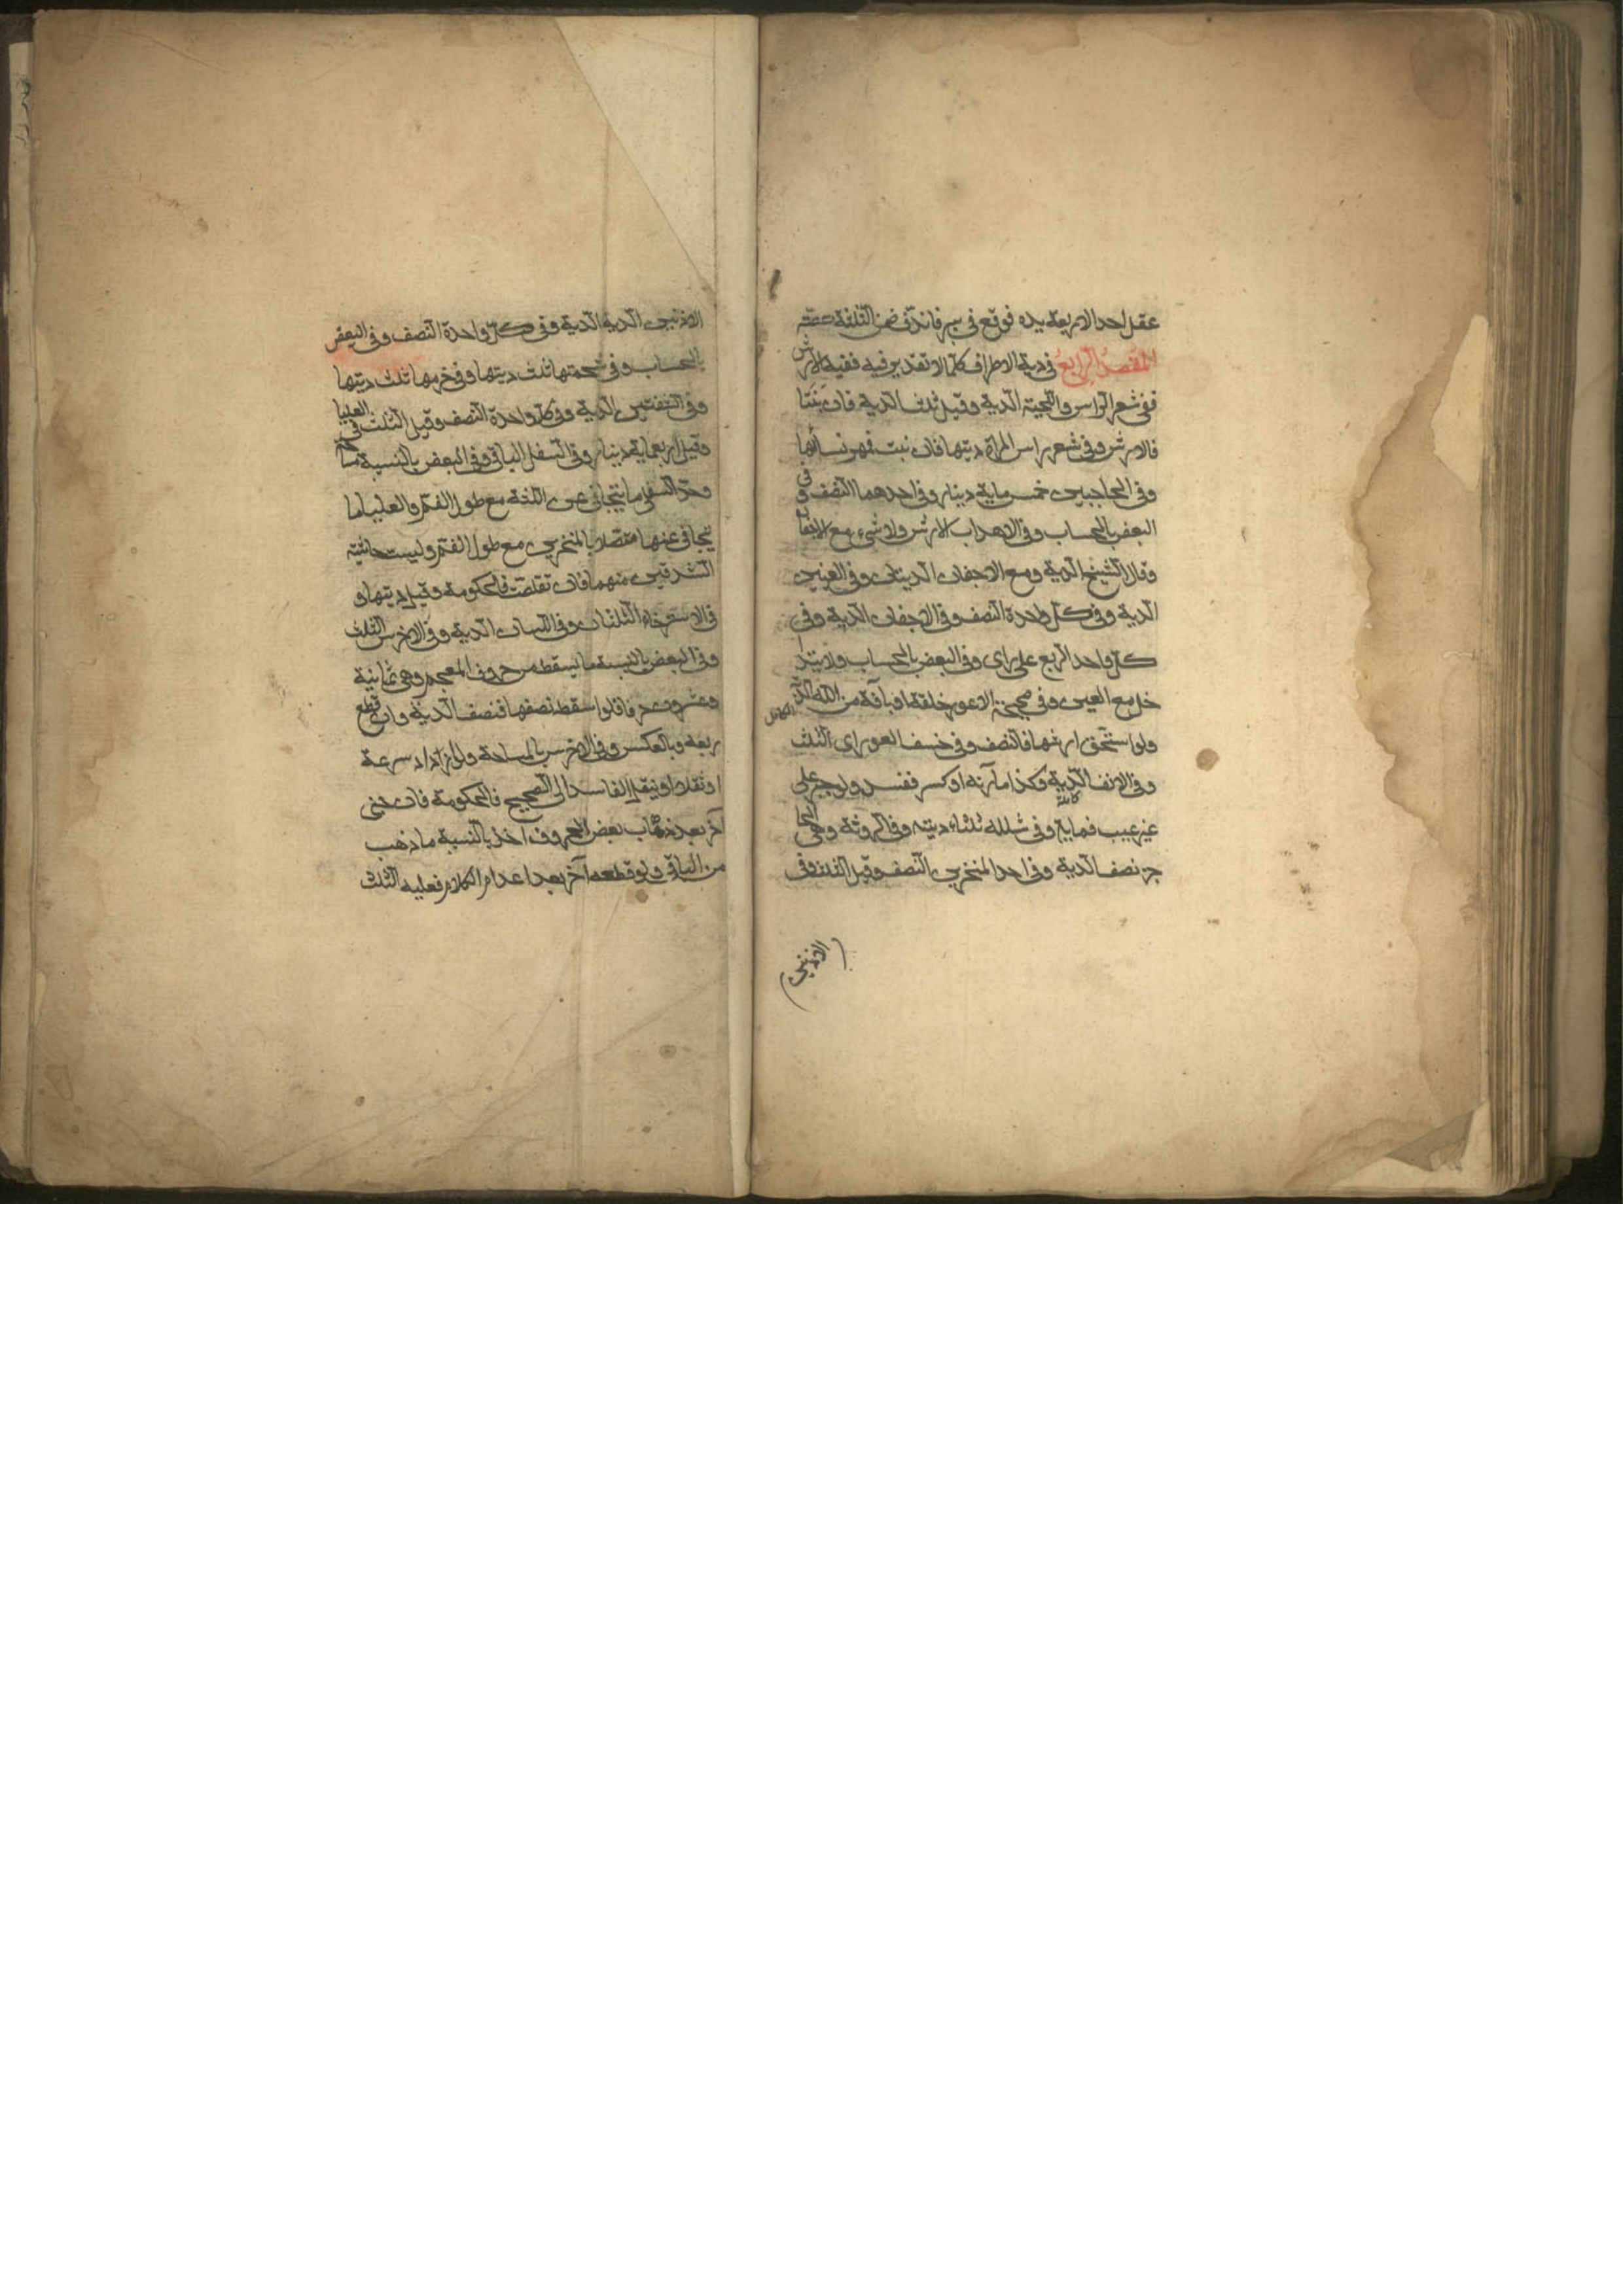 عقل احد الاربعة يده فوقع في بير فاندق ضمن الثلثة حصته
المقصد الرابع في دية الاطراف كلما لا تقدير فيه ففيه الارش
ففي شعر الراس واللحية الدية وقيل ثلث الدية فان نبتا
فالارش وفي شعر راس المراة ديتها فان نبت فمهر نسائها
وفي الحاجبين خمس ماية دينار وفي احدهما النصف وفي
البعض بالحساب وفي الاهداب الارش ولا شيء مع الاجفان
وقال الشيخ الدية ومع الاجفان الديتان وفي العينين
الدية وفي كل واحدة النصف وفي الاجفان الدية وفي
كل واحد الربع على راى وفي البعض بالحساب ولا يتدا
خل مع العين وفي صحيحة الاعور خلقة او بآفة من الله الدية
الكامل
ولو استحق ارشها فالنصف وفي خسف العوراى الثلث
وفي الانف الدية وكذا مارنه او كسر ففسد ولو جبر على
غير عيب فماية وفي شلله ثلثاء ديته وفي الروثة وهي الحا
جز نصف الدية وفي احد المنخرين النصف وقيل الثلث وفي
الاذنين
الاذنين الدية الدية وفي كل واحدة النصف وفي البعض
بالحساب وفي شحمتها ثلث ديتها وفي خرمها ثلث ديتها
وفي الشفتين الدية وفي كل واحدة النصف وقيل الثلث في العليا
وقيل اربعماية دينار وفي السفل الباقي وفي البعض بالنسبة مساحة
وحد السفلى ما يتجافى عن اللثة مع طول الفم والعليا ما
يتجافى عنها متصلا بالمنخرين مع طول الفم وليست حاشية
الشدقين منهما فان تقلصت فالحكومة وقيل ديتها و
في الاسترخاء الثلثان وفي اللسان الدية وفي الاخرس الثلث
وفي البعض بالنسبة ما يسقط من حروف المعجم وهي ثمانية
وعشرون حرفا فلو اسقط نصفها فنصف الدية وان قطع
ربعه وبالعكس وفي الاخرس بالمساحة ولو ازداد سرعة
او ثقلا او نيقل الفاسد الى الصحيح فالحكومة فان جنى
آخر بعد ذهاب بعض الحروف اخذ بالنسبة ما ذهب
من الباقي ولو قطعه آخر بعد اعدام الكلام فعليه الثلث